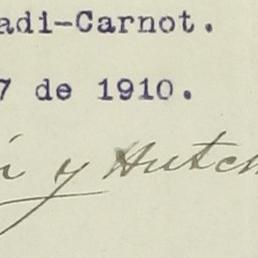 adi-Carnot.
7 de 1910.
í y Hutch